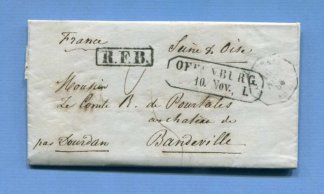 France Seine & Oise
R.F.B.
OFFENBURG
10. Nov. I.
Monsieur
Le Comte A. de Pourtales
au chateau de
Bandeville
par Dourdan